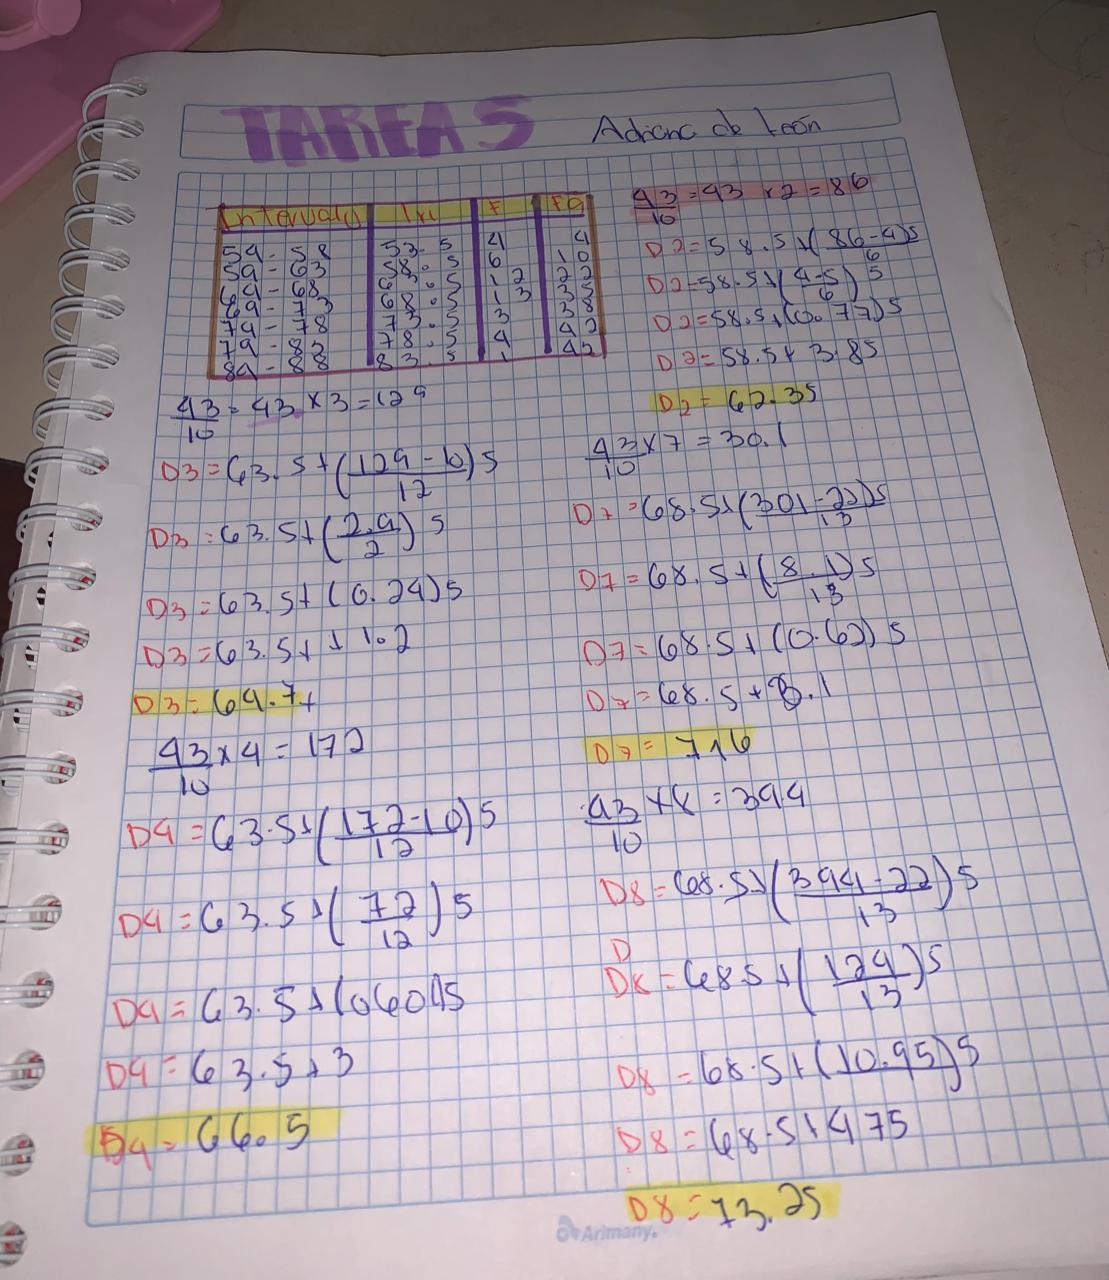 TAREA 5 Adriana de León
Intervalos Lri F Fa
54 - 58 53.5 4 4
59 - 63 58.5 6 10
64 - 68 63.5 12 22
69 - 73 68.5 13 35
74 - 78 73.5 3 38
79 - 83 78.5 4 42
84 - 88 83.5 1 43
43/10 = 43 x 2 = 86
D2 = 58.5 + (86-4/6)5
D2 = 58.5 + (4-5/6)5
D2 = 58.5 + (0.77)5
D2 = 58.5 + 3.85
D2 = 62.35
43/10 = 43 x 3 = 129
D3 = 63.5 + (129-10/12)5
D3 = 63.5 + (2.9/2)5
D3 = 63.5 + (0.24)5
D3 = 63.5 + + 1.2
D3 = 64.7+
43/10 x 4 = 172
D4 = 63.5 + (172-10/12)5
D4 = 63.5 + (72/12)5
D4 = 63.5 + (060)5
D4 = 63.5 + 3
D4 = 66.5
43/10 x 7 = 30.1
D7 = 68.5 + (301-22/13)5
D7 = 68.5 + (8.1/13)5
D7 = 68.5 + (0.62)5
D7 = 68.5 + 3.1
D7 = 716
43/10 x 8 = 344
D8 = 68.5 + (344-22/13)5
D
D8 = 68.5 + (124/13)5
D8 = 68.5 + (10.95)5
D8 = 68.5 + 475
D8 = 73.25
Arimany.